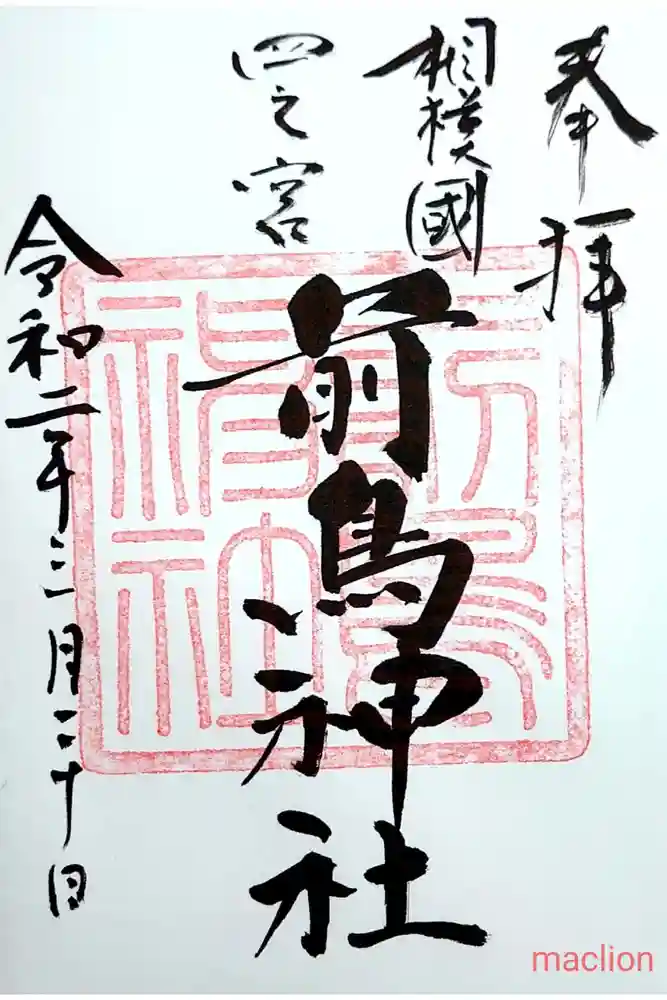 奉拝
相模國
四之宮
前鳥神社
令和二年三月二十日
maclion